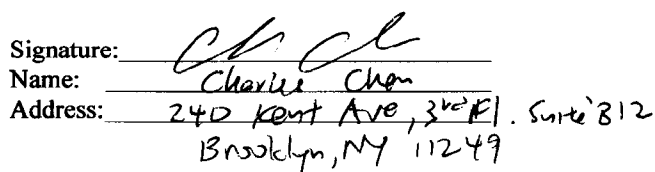 Signature:
Name: Charlie Chen
Address: 240 Kent Ave, 3rd Fl. Suite B12
Brooklyn, NY 11249